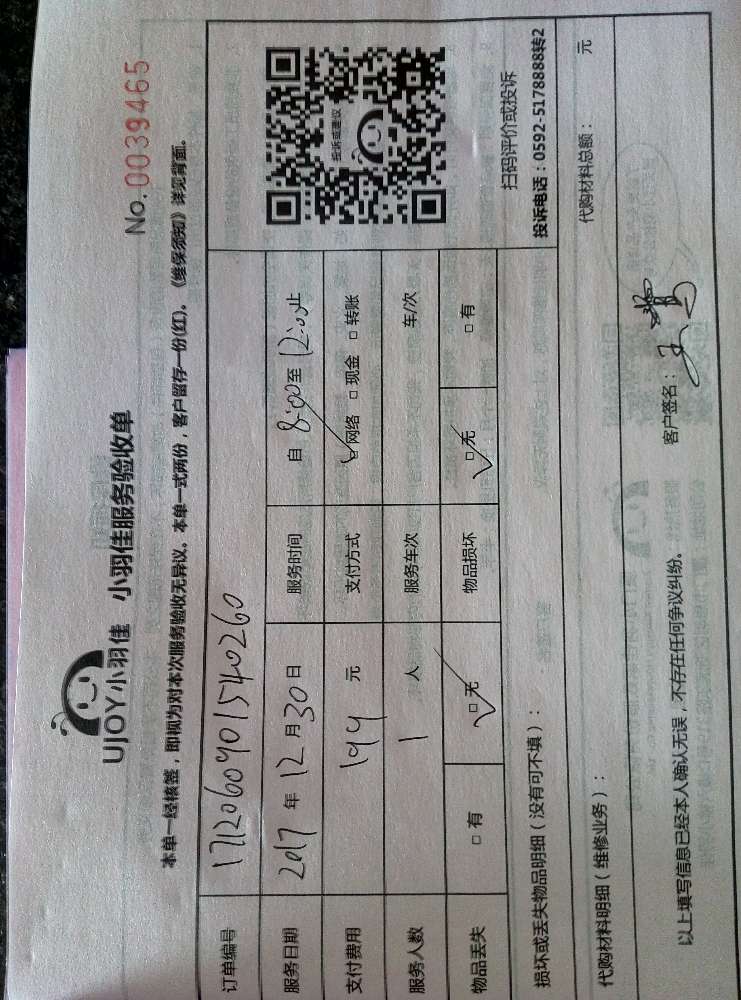 UJOY小羽佳 小羽佳服务验收单
No. 0039465
本单一经核签，即视为对本次服务验收无异议。本单一式两份，客户留存一份(红)。《维保须知》详见背面。
订单编号 1712060901540260
服务日期 2017 年 12 月 30 日 服务时间 自 8:00 至 12:00 止
支付费用 199 元 支付方式 □网络 □现金 □转账
服务人数 1 人 服务车次 车/次
物品丢失 □有 □无 物品损坏 □无 □有
投诉或建议
扫码评价或投诉
投诉电话：0592-5178888转2
损坏或丢失物品明细（没有可不填）：
代购材料明细（维修业务）： 代购材料总额： 元
以上填写信息已经本人确认无误，不存在任何争议纠纷。 客户签名：